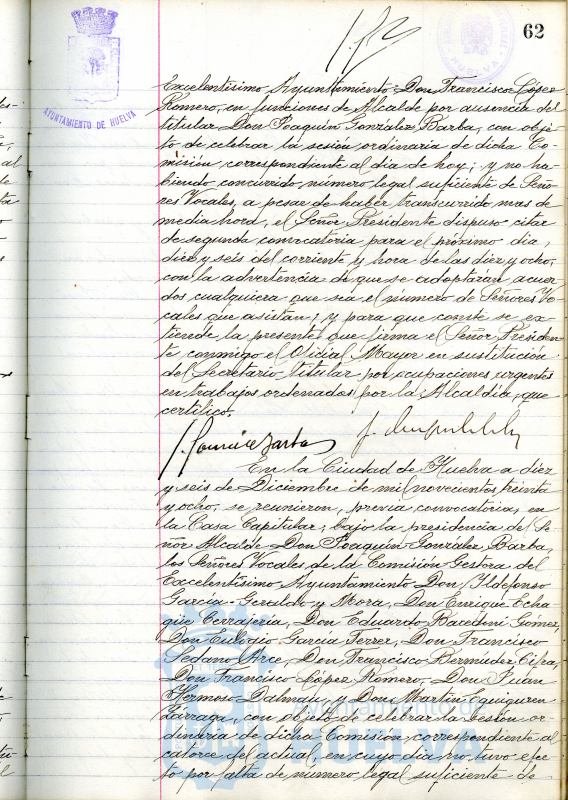 62
AYUNTAMIENTO DE HUELVA
HUELVA
Excelentísimo Ayuntamiento Don Francisco López
Romero, en funciones de Alcalde por ausencia del
titular Don Joaquín González Barba, con obje-
to de celebrar la sesión ordinaria de dicha Co-
misión correspondiente al día de hoy; y no ha-
biendo concurrido número legal suficiente de Seño-
res Vocales, a pesar de haber transcurrido mas de
media hora, el Señor Presidente dispuso citar
de segunda convocatoria para el próximo día,
diez y seis del corriente y hora de las diez y ocho,
con la advertencia de que se adoptarán acuer-
dos cualquiera que sea el número de Señores Vo-
cales que asistan; y para que conste se ex-
tiende la presente que firma el Señor Presiden-
te conmigo el Oficial Mayor en sustitución
del Secretario titular por ocupaciones urgentes
en trabajos ordenados por la Alcaldía, que
certifico.
En la Ciudad de Huelva a diez
y seis de Diciembre de mil novecientos treinta
y ocho, se reunieron, previa convocatoria, en
la Casa Capitular, bajo la presidencia del Se-
ñor Alcalde Don Joaquín González Barba,
los Señores Vocales de la Comisión Gestora del
Excelentísimo Ayuntamiento Don Ildefonso
García Geraldo y Mora, Don Enrique Echa-
güe Cerrajería, Don Eduardo Bacedoni Gómez,
Don Eulogio García Ferrer, Don Francisco
Sedano Arce, Don Francisco Bermudez Cifra,
Don Francisco López Romero, Don Juan
Hermos Dalmau y Don Martín Eguiguren
Larraga, con objeto de celebrar la sesión or-
dinaria de dicha Comisión correspondiente al
catorce del actual, en cuyo día no tuvo efec-
to por falta de número legal suficiente de
Ayuntamiento de
HUELVA